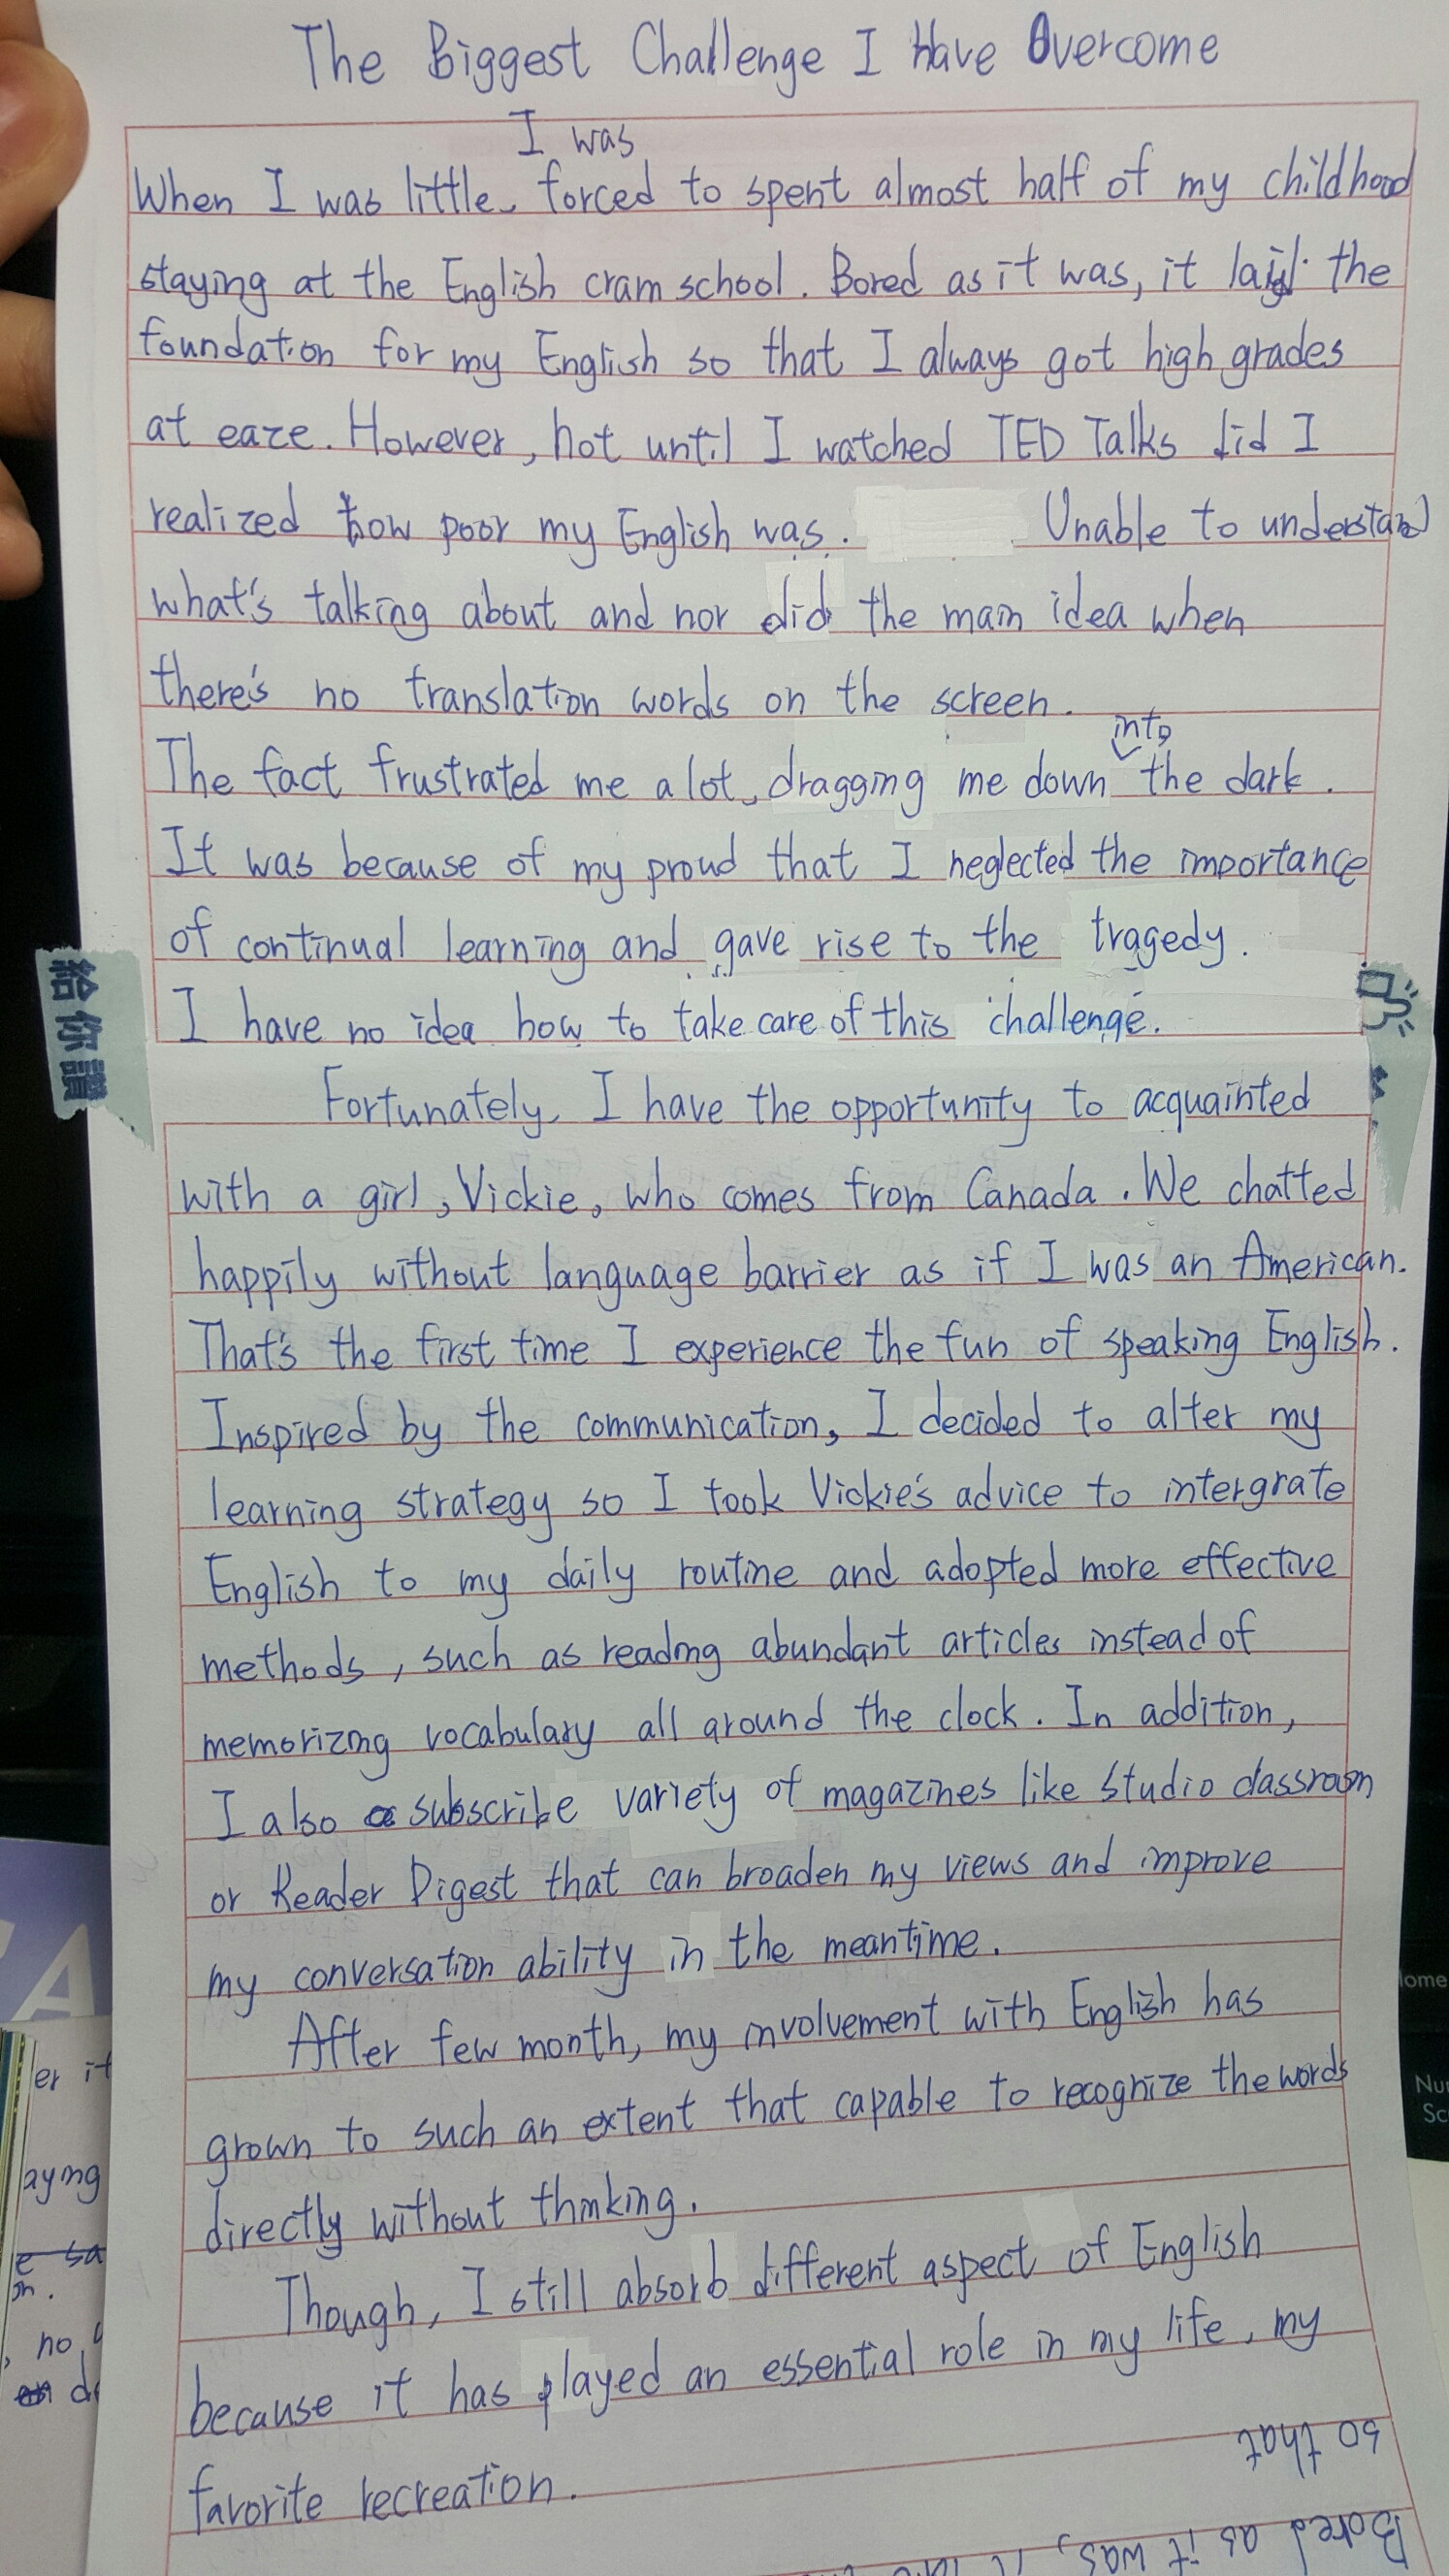 The Biggest Challenge I Have Overcome
I was
When I was little, forced to spent almost half of my childhood
staying at the English cram school. Bored as it was, it laid the
foundation for my English so that I always got high grades
at eaze. However, not until I watched TED Talks did I
realized how poor my English was. Unable to understand
what's talking about and nor did the main idea when
there's no translation words on the screen.
into
The fact frustrated me a lot, dragging me down the dark.
It was because of my proud that I neglected the importance
of continual learning and gave rise to the tragedy.
I have no idea how to take care of this challenge.
給你讚
Fortunately, I have the opportunity to acquainted
with a girl, Vickie, who comes from Canada. We chatted
happily without language barrier as if I was an American.
That's the first time I experience the fun of speaking English.
Inspired by the communication, I decided to alter my
learning strategy so I took Vickie's advice to intergrate
English to my daily routine and adopted more effective
methods, such as reading abundant articles instead of
memorizing vocabulary all around the clock. In addition,
I also subscribe variety of magazines like Studio classroom
or Reader Digest that can broaden my views and improve
my conversation ability in the meantime.
After few month, my involvement with English has
grown to such an extent that capable to recognize the words
directly without thinking.
Though, I still absorb different aspect of English
because it has played an essential role in my life, my
favorite recreation.
so that
Bored as it was, it
er it
aying
no